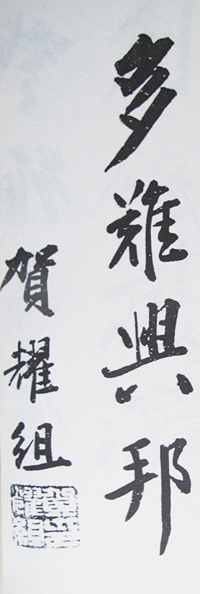 多難興邦
賀耀組